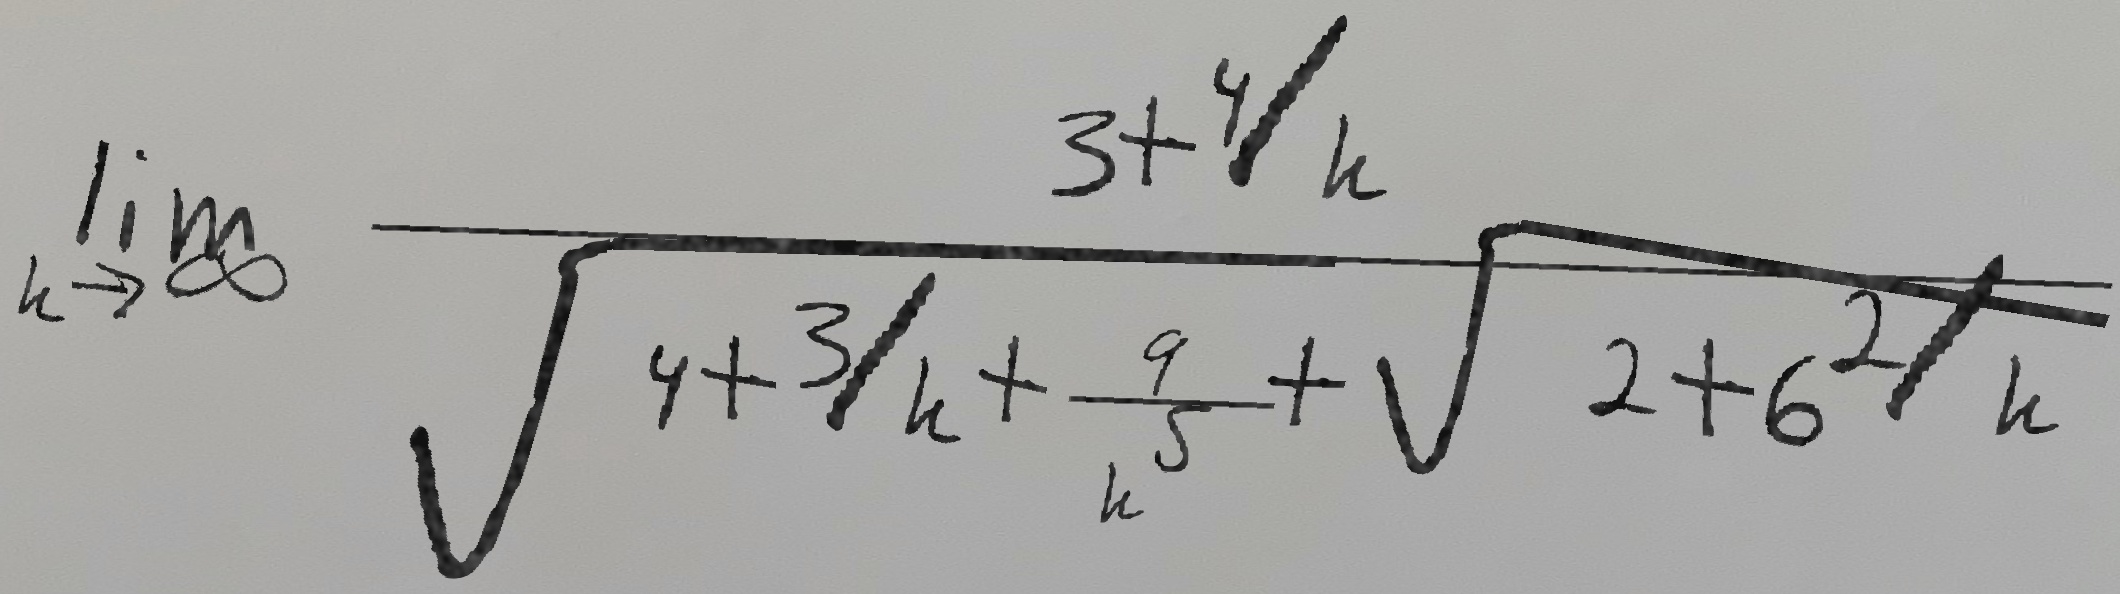 \lim_{k \to \infty} \frac{3+4/k}{\sqrt{4+3/k+\frac{9}{k^5}}+\sqrt{2+6^2/k}}